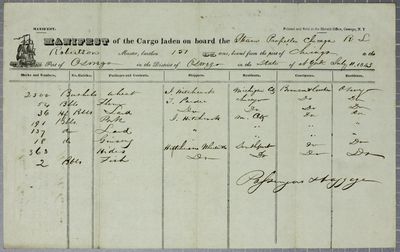 MANIFEST.
Printed and Sold at the Herald Office, Oswego, N.Y.
MANIFEST of the Cargo laden on board the Steam Propeller Chicago
Robertson Master, burthen 151 tons, bound from the port of Chicago in the
Port of Oswego in the District of Oswego in the State of N York July 11, 1843
Marks and Numbers. No. Entries. Packages and Contents. Shippers. Residence. Consignees. Residence.
2500 Bushels Wheat J. Hitchcock Michigan Cy Oswego
54 Bbls Flour Chicago Do Do
36 Hf Bbls Lard Do Do Do Do
191 Bbls Pork J. Hitchcock M. City
137 do Lard
18 do Ginseng
363 Hides Southport Do Do
2 Bbls Fish Do Do Do Do
Passengers & Baggage